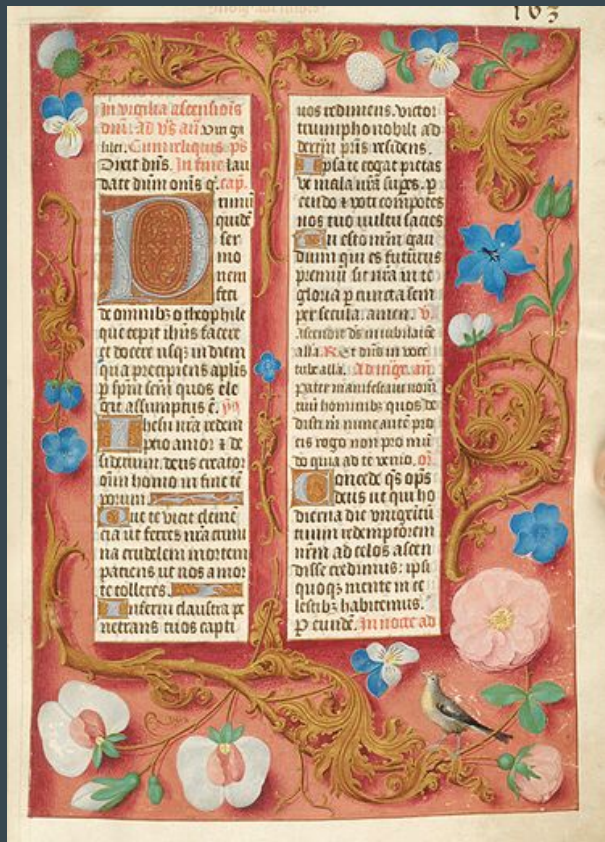 163
In vigilia ascensiõis
dñi. Ad vs añ virga
Cumreliquis ps
Dixit dñs. In fine lau
date dñm om̃s g̃. cap.
Primũ
quidẽ
ser
mo
nem
feci
de omnibz o theophile
que cepit ihũs facere
et docere usqz in diem
qua precipiens aplĩs
p spm̃ scm̃ quos ele
git assumptus ẽ. ym̃
Ihesu nr̃a redemp
tio amor ⁊ de
siderium. deus creator
oĩm homo in fine tẽ
porum.
Que te vicit clemẽ
cia ut ferres nr̃a crimi
na crudelem mortem
patiens ut nos a mor
te tolleres.
Inferni claustra pe
netrans tuos capti
uos redimens. victor
triumpho nobili ad
dextrã prĩs residens.
Ipsa te cogat pietas
ut mala nr̃a supes. p
cendo ⁊ voti compotes
nos tuo vultu sacies
Tu esto nr̃m gau
dium qui es futurus
premiũ sit nr̃a in te
gloria p cuncta sem
per secula. amen. v.
Ascendit ds̃ in iubilatõe
alla. R. Et dñs in voce
tube alla. Ad mg̃e. añ.
Pater manifestaui nom̃
tuũ hominibz quos de
disti m̃ nunc autẽ pro
eis rogo non pro mũ
do quia ad te venio. or̃
Concede qs̃ ops̃
deus ut qui ho
dierna die vnigenitũ
tuum redemptorem
nr̃m ad celos ascen
disse credimus: ipsi
quoqz mente in ce
lestibz habitemus.
P eundẽ. In nocte ad